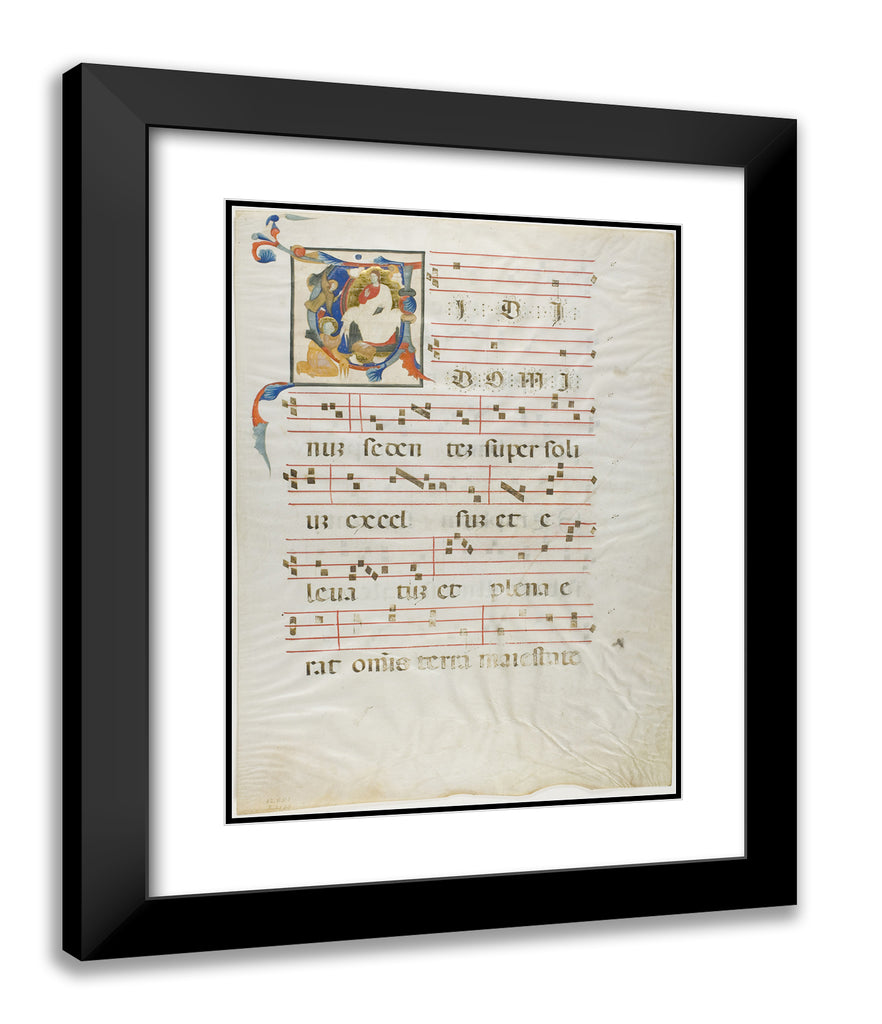 VIDI
DOMI
nuʒ seden teʒ super soli
uʒ excel suʒ et e
leua tuʒ et plena e
rat om̄is terra maiestate